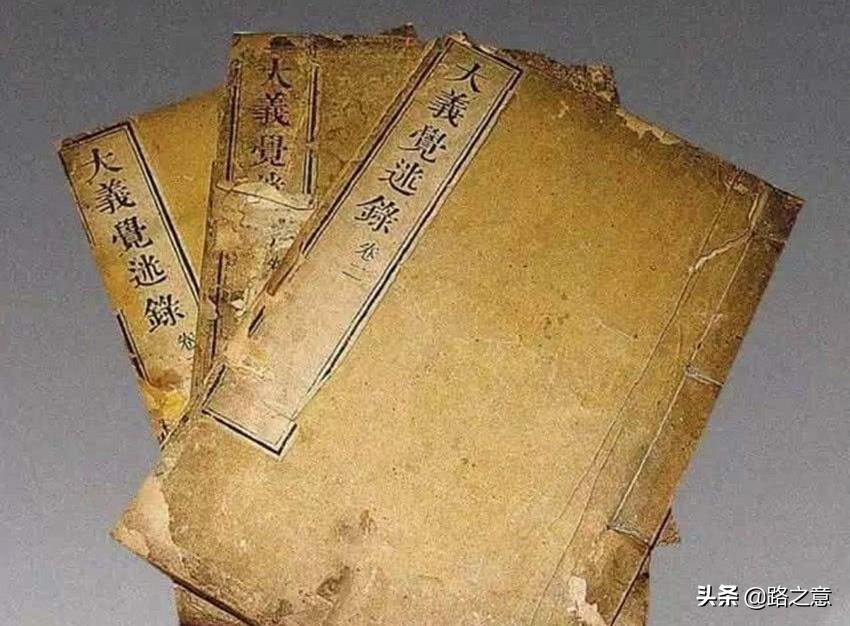 大義覺迷錄 卷
大義覺
大義覺迷錄 卷二
头条 @路之意